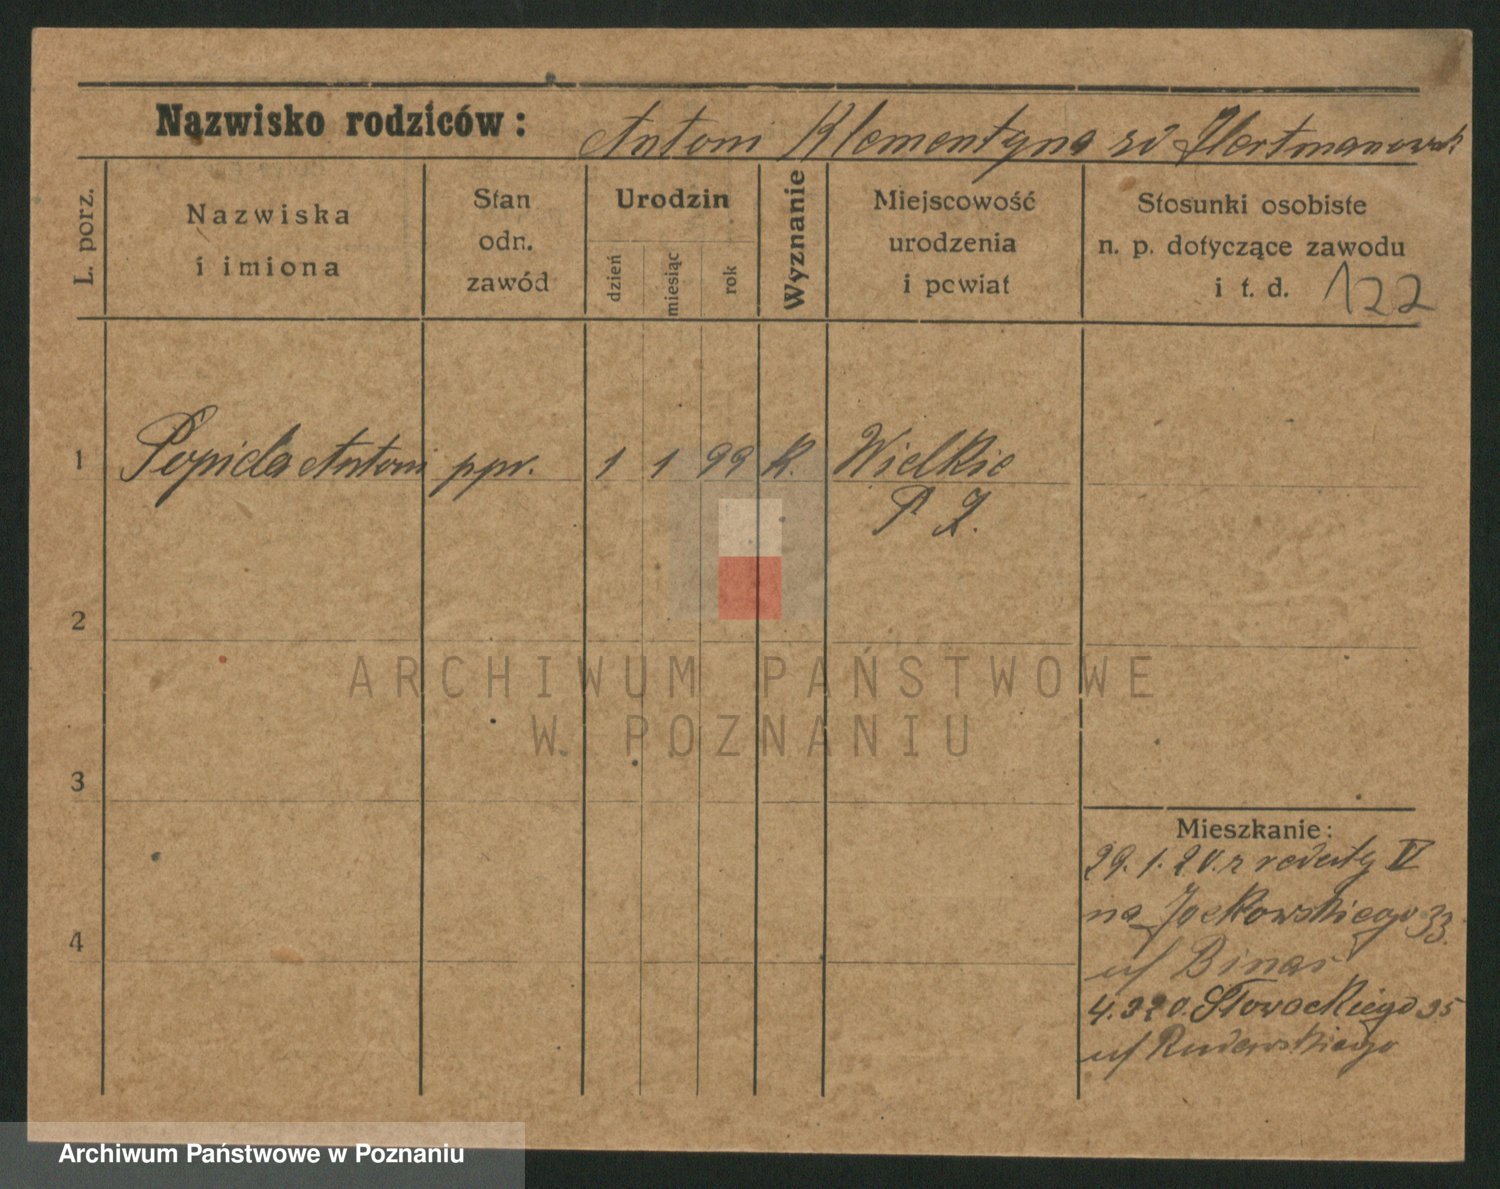 Nazwisko rodziców: Antoni Klementyna zd Hertmanowsk
L. porz.
Nazwiska
i imiona
Stan
odn.
zawód
Urodzin
dzień
miesiąc
rok
Wyznanie
Miejscowość
urodzenia
i powiat
Stosunki osobiste
n. p. dotyczące zawodu
i t. d. 122
1 Popida Antoni ppr. 1 1 99 k. Wielkie
P
2
3
4
ARCHIWUM PAŃSTWOWE
W POZNANIU
Mieszkanie:
29.1.20. z reduty V
na Jackowskiego 33.
u/ Binas
4.3 20. Słowackiego 35
u/ Rudewskiego
Archiwum Państwowe w Poznaniu